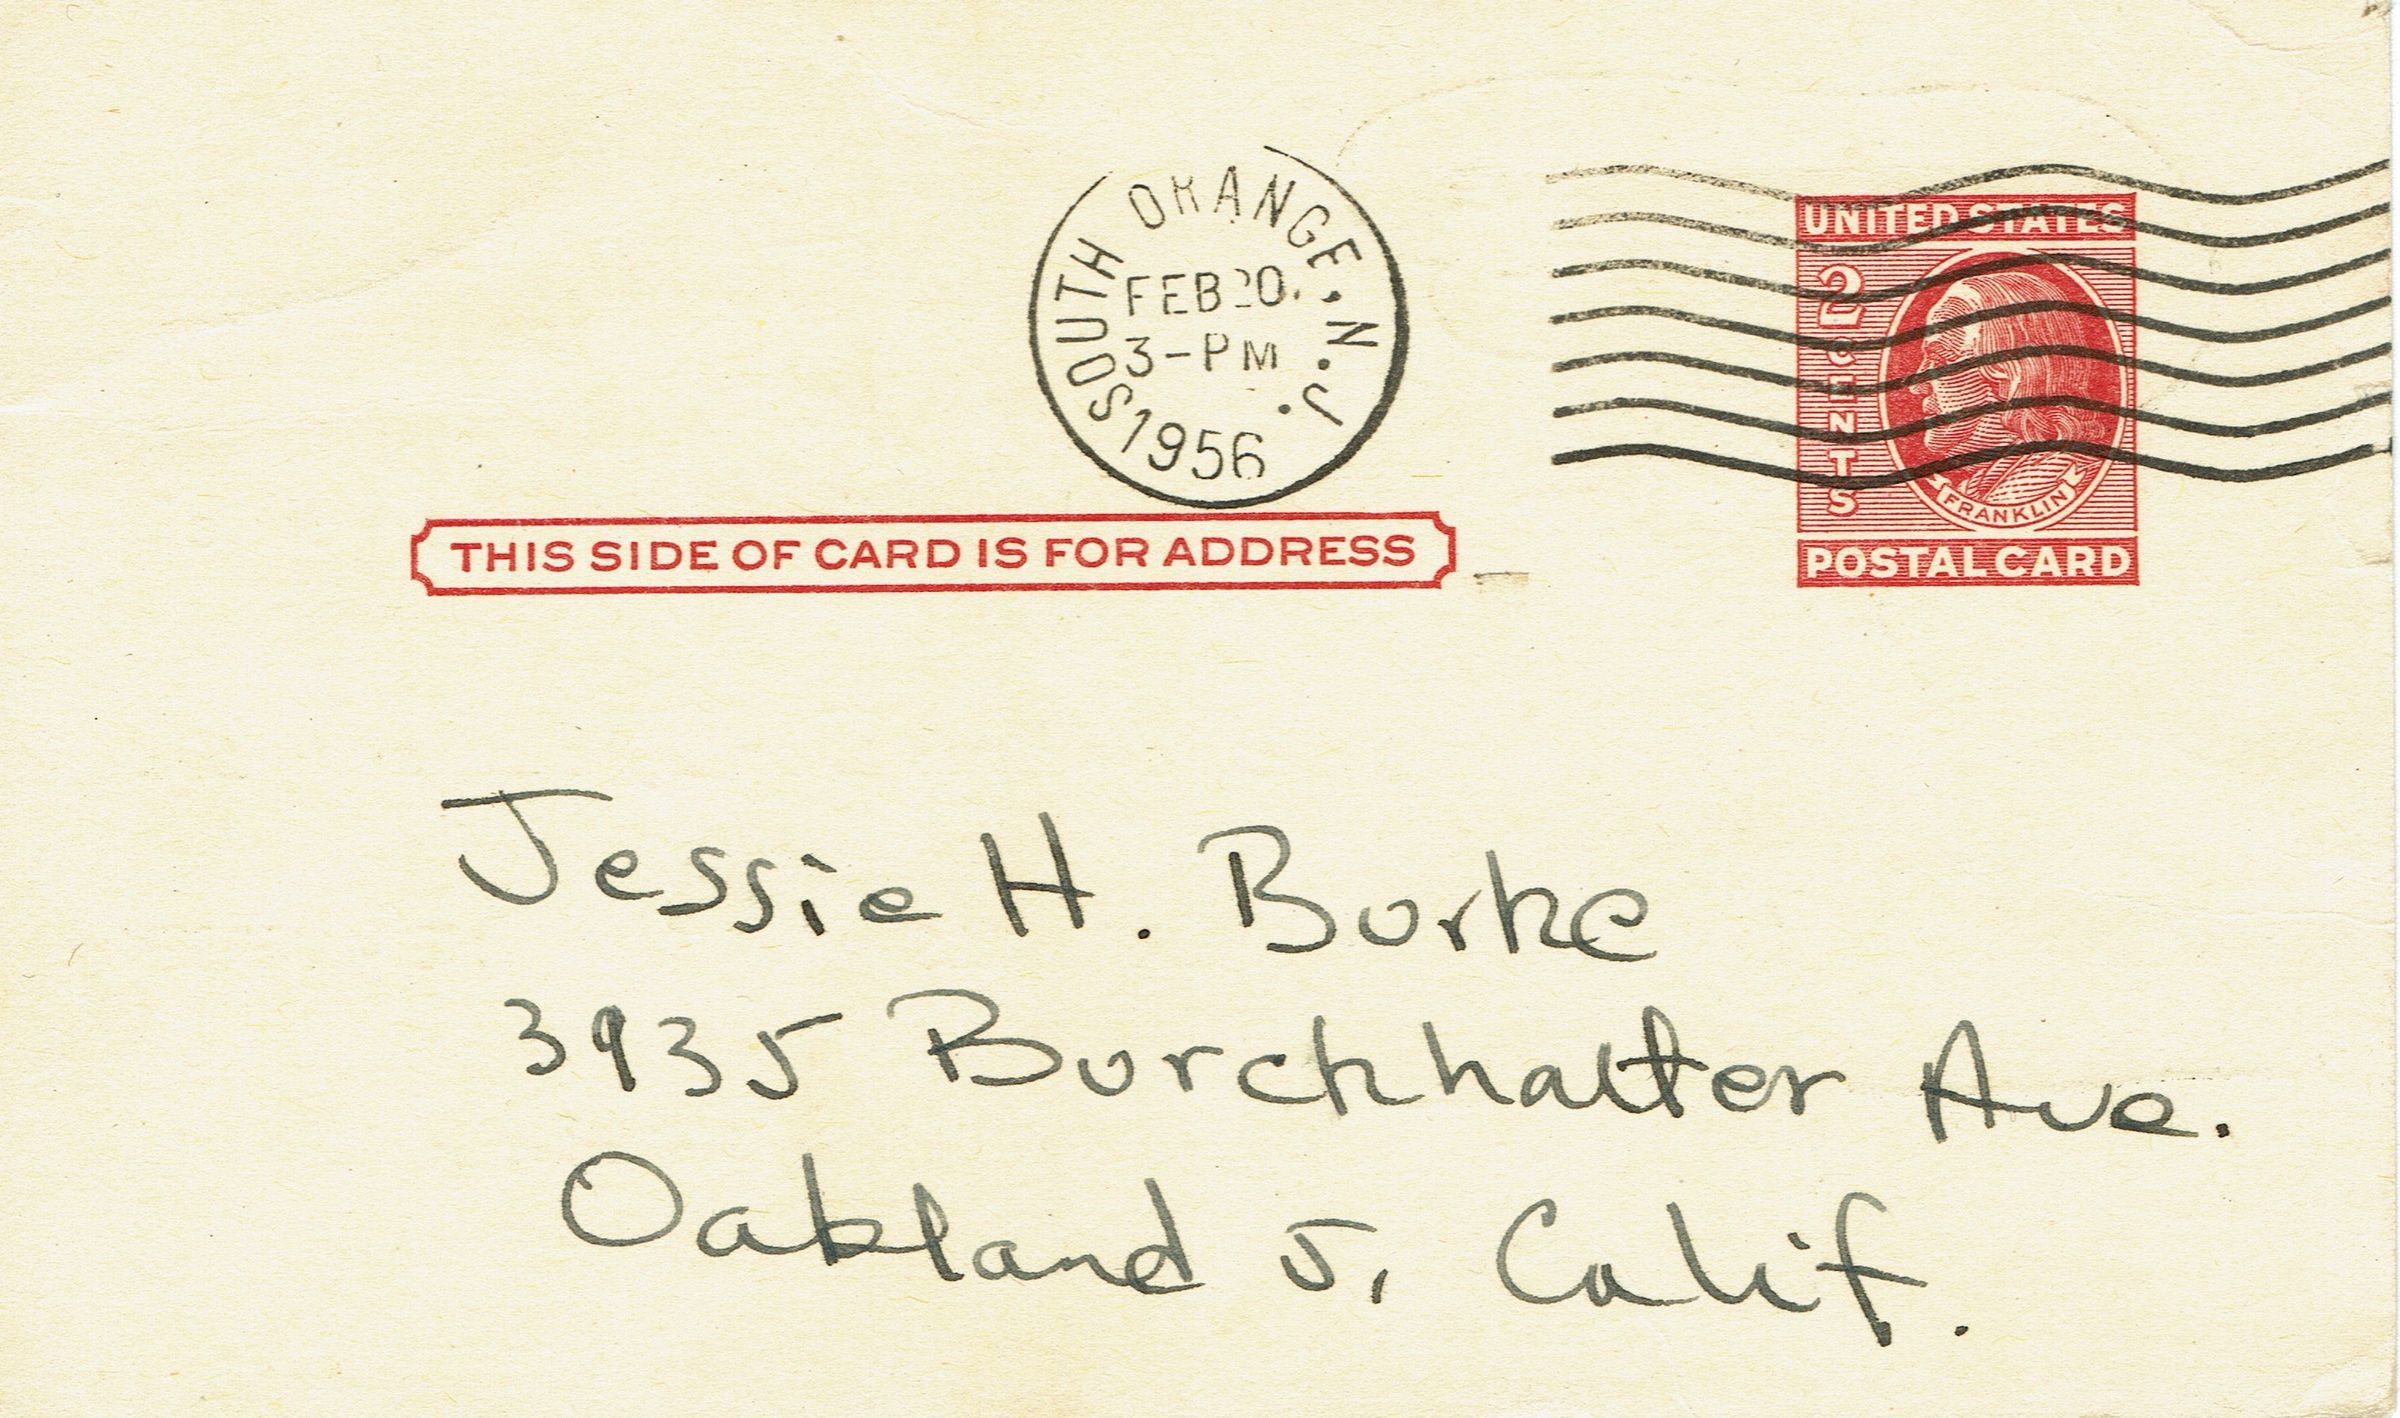 SOUTH ORANGE, N.J.
FEB 20
3-PM
1956
UNITED STATES
2 CENTS
FRANKLIN
POSTAL CARD
THIS SIDE OF CARD IS FOR ADDRESS
Jessie H. Burke
3935 Burckhalter Ave.
Oakland 5, Calif.